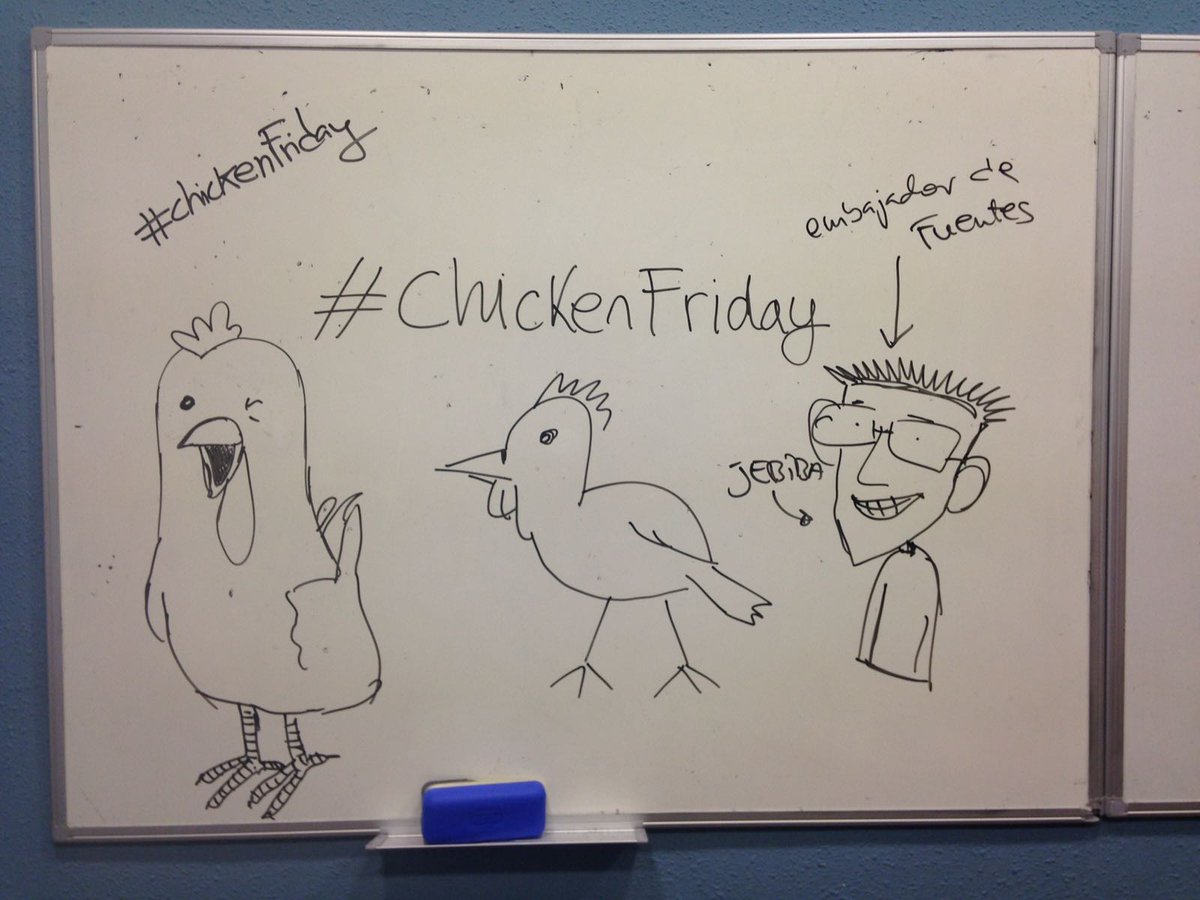 #chickenFriday
embajador de
Fuentes
#ChickenFriday
JEBiBA